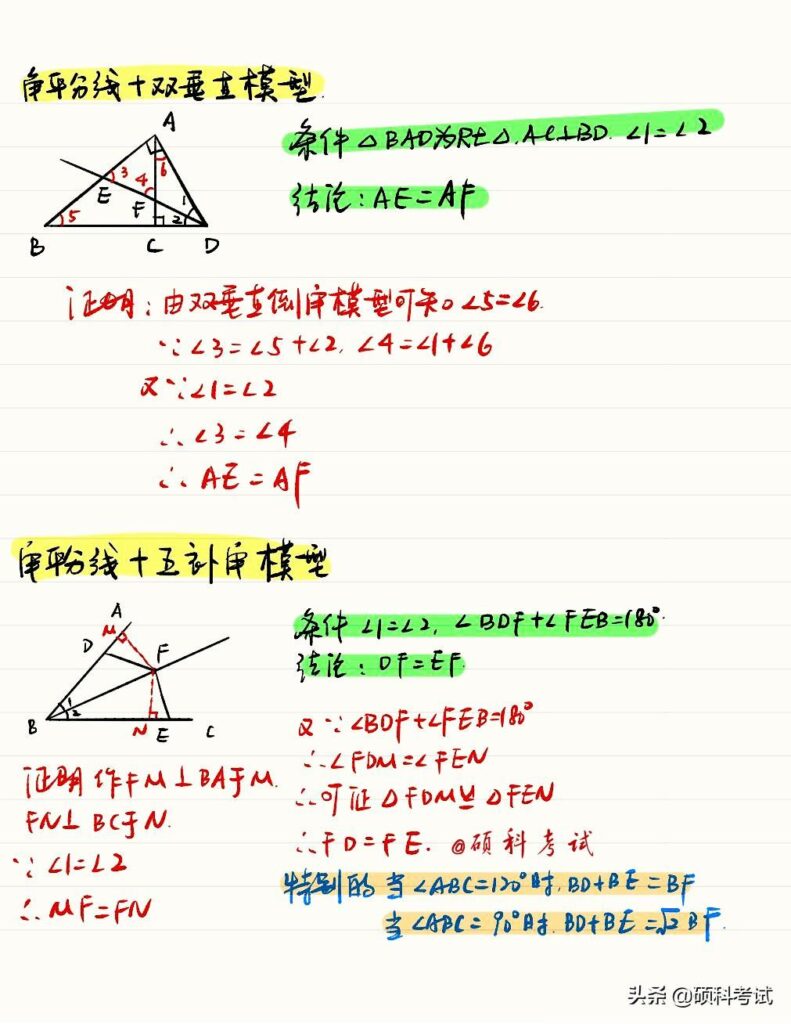 角平分线+双垂直模型
A
3
4
6
E
F
1
2
5
B
C
D
条件 △BAD为Rt△,AC⊥BD.∠1=∠2
结论:AE=AF
证明:由双垂直倒角模型可知∠5=∠6.
∵∠3=∠5+∠2,∠4=∠1+∠6
又∵∠1=∠2
∴∠3=∠4
∴AE=AF
角平分线+互补角模型
A
M
D
F
B
1
2
N
E
C
条件 ∠1=∠2,∠BDF+∠FEB=180°.
结论:DF=EF.
证明 作FM⊥BA于M.
FN⊥BC于N.
∵∠1=∠2
∴MF=FN
又∵∠BDF+∠FEB=180°
∴∠FDM=∠FEN
∴可证△FDM≌△FEN
∴FD=FE. @硕科考试
特别的 当∠ABC=120°时.BD+BE=BF
当∠ABC=90°时.BD+BE=√2BF.
头条 @硕科考试